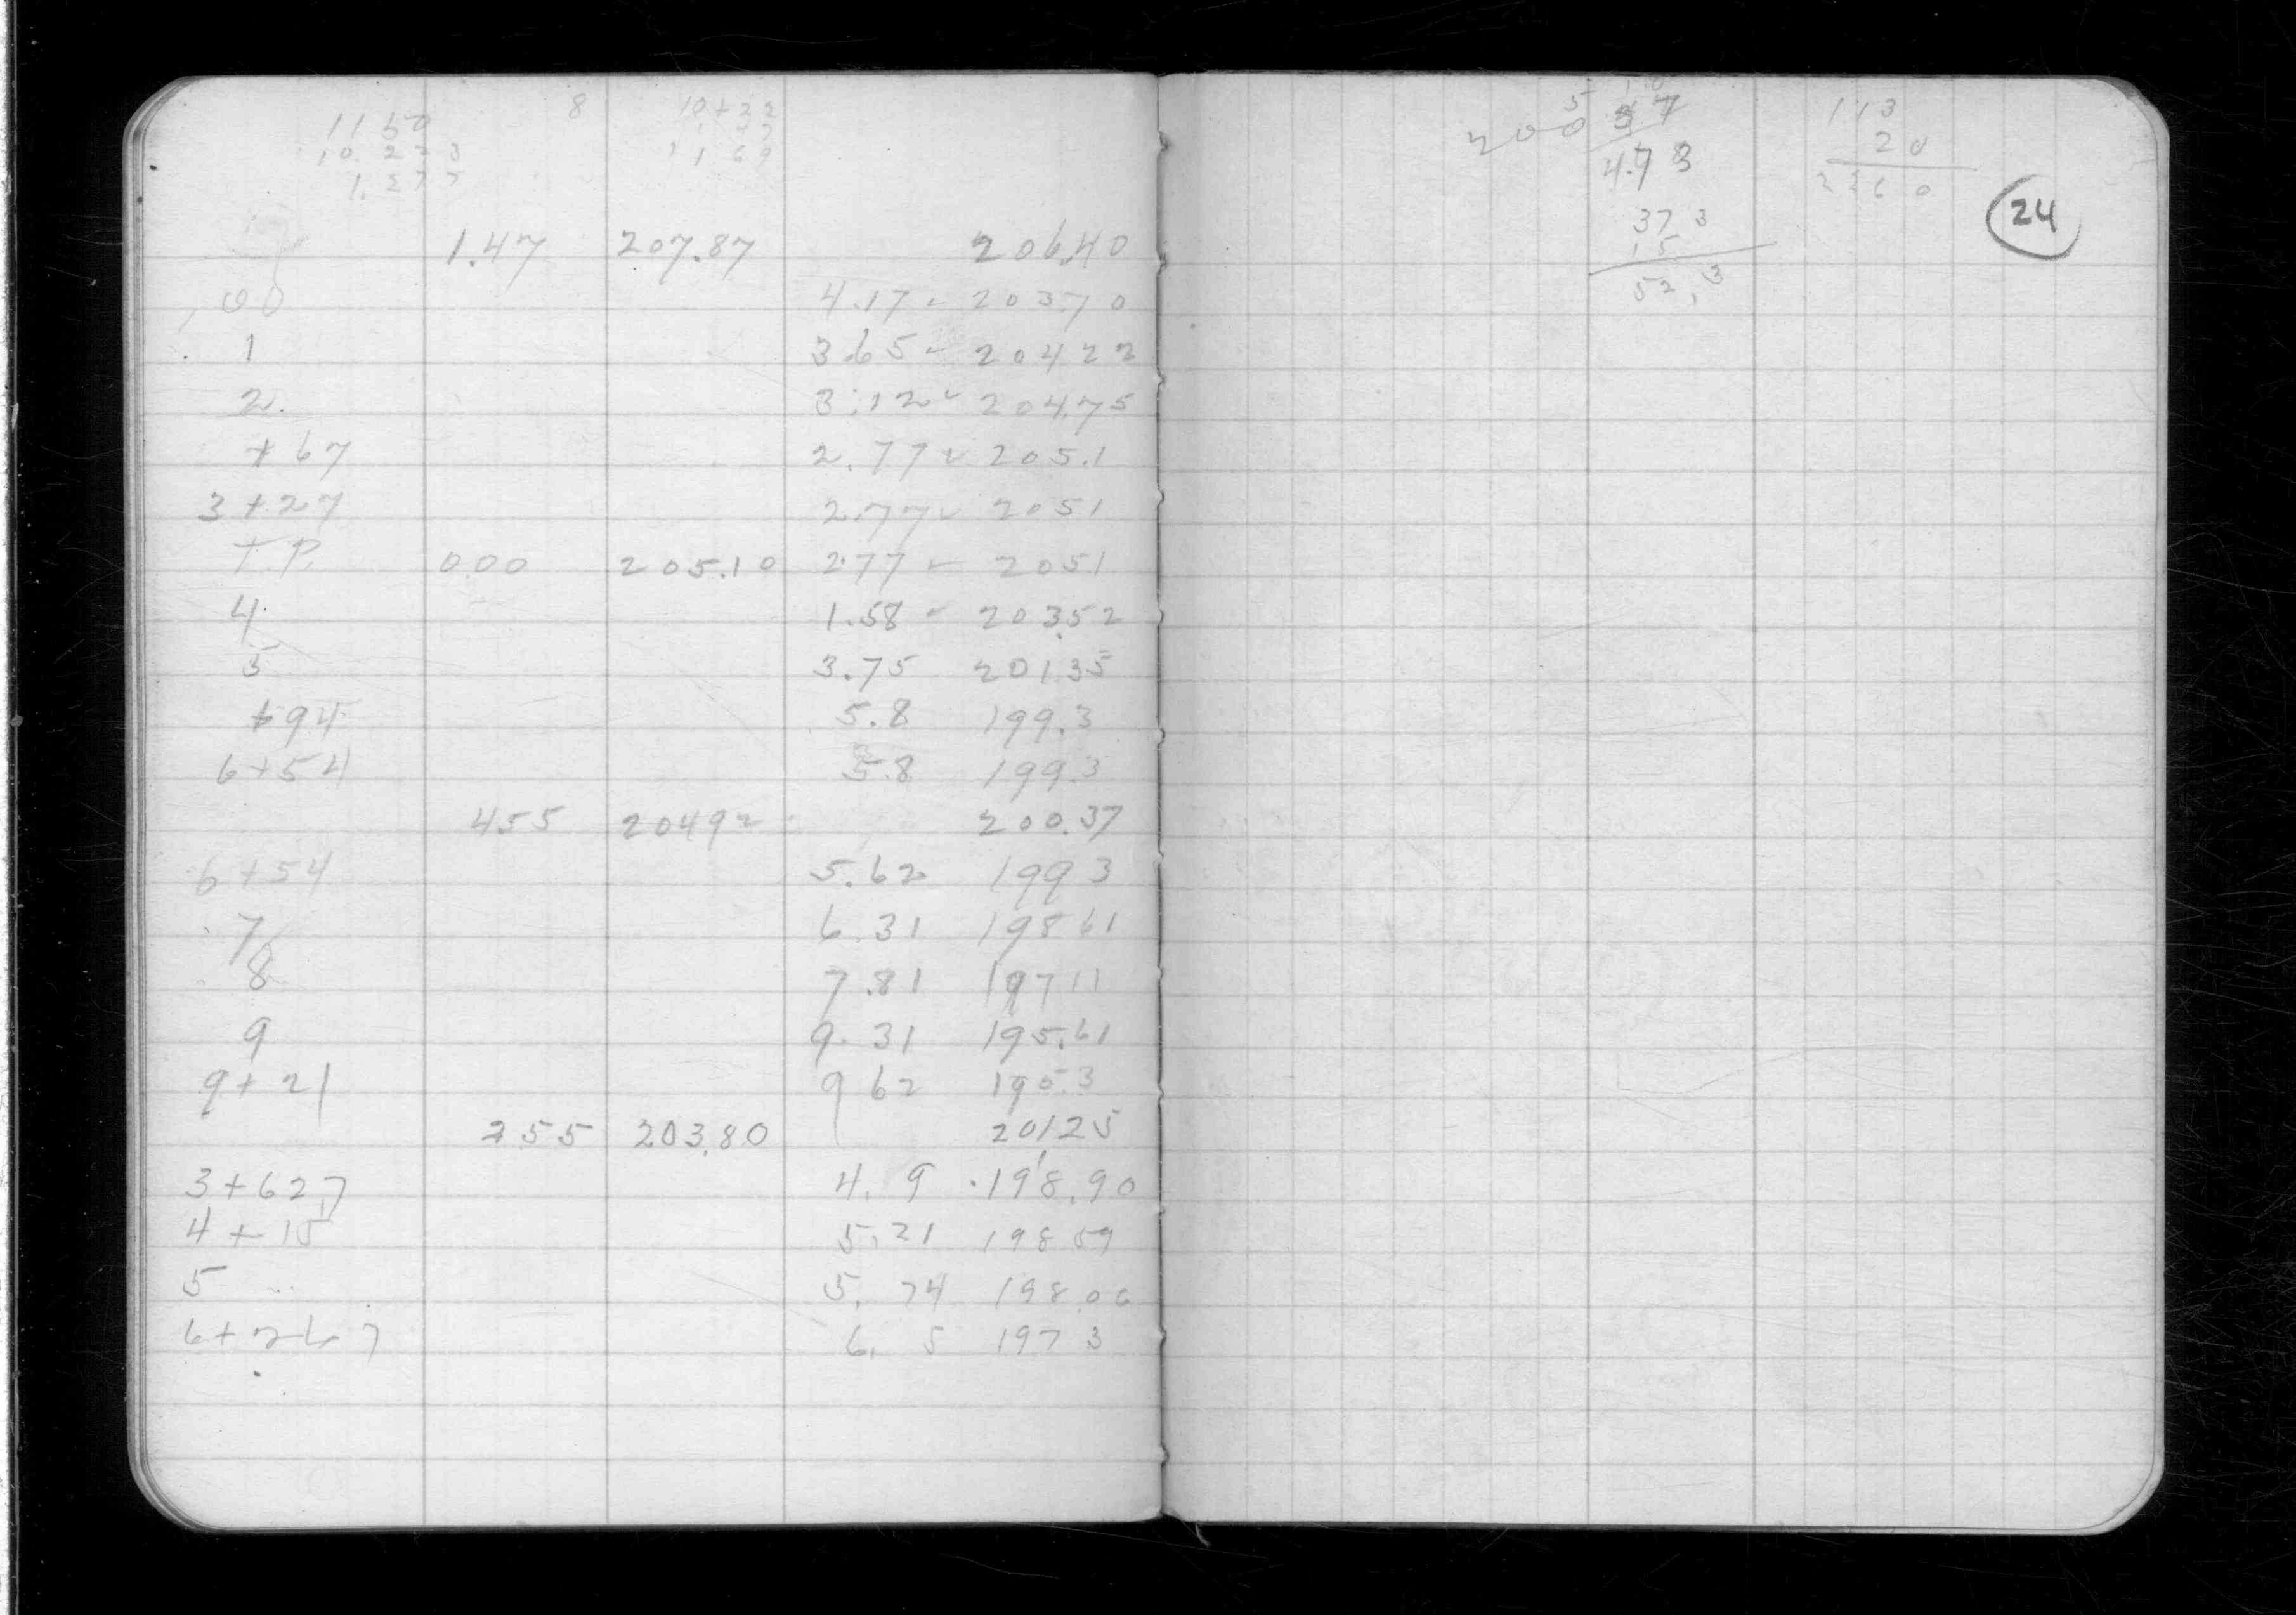 8 10+32
11 50
10. 223
1. 277
11 69
1.47 207.87 206.40
00 4.17 - 203.70
1 3.65 - 204 22
2. 3.12 - 204.75
+67 2.77 - 205.1
3+27 2.77 - 205 1
T.P. 0.00 205.10 2.77 - 205.1
4 1.58 - 203.52
5 3.75 201.35
+94 5.8 199.3
6+54 5.8 199.3
455 20492 200.37
6+54 5.62 199 3
7 6.31 198 61
8 7.81 197 11
9 9.31 195.61
9+21 9 62 195.3
255 203.80 20125
3+627 4.9 198.90
4+15 5.21 198 59
5 5.74 198.06
6+767 6.5 197 3
5
200 37
4.73
37 3
15
52.3
113
20
2260
24